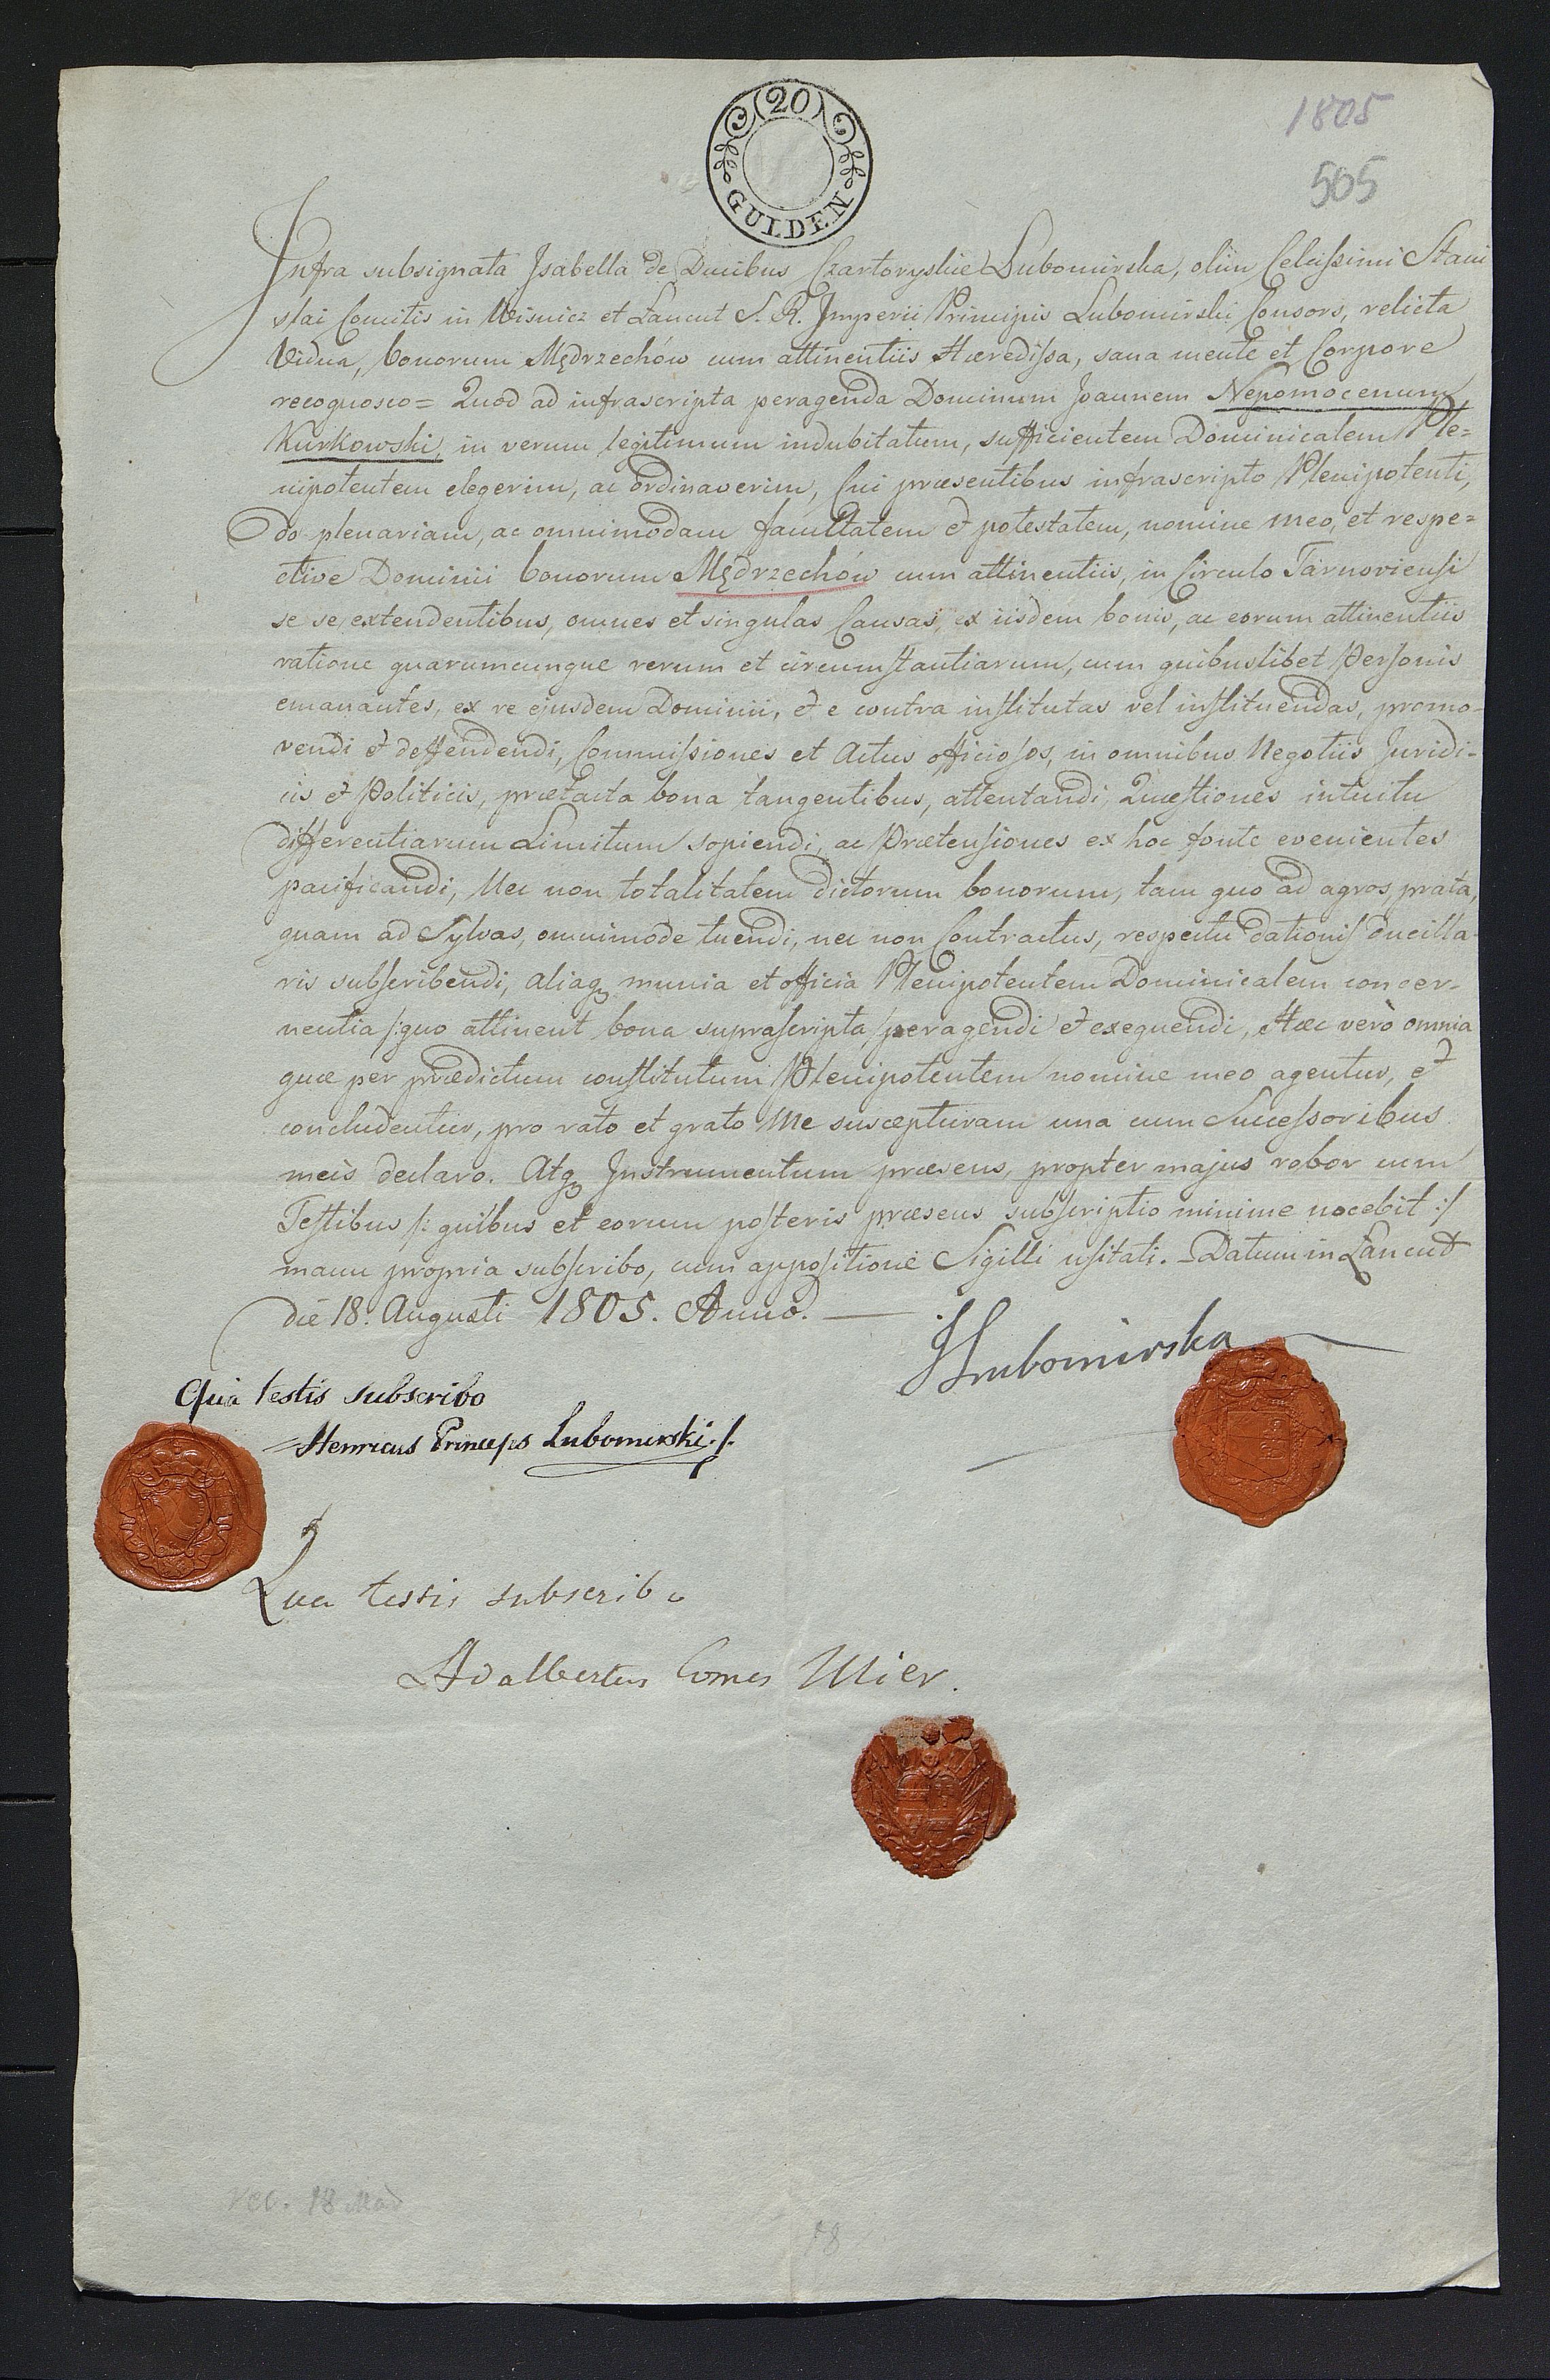 20
GULDEN
1805
505
Infra subsignata Isabella de Ducibus Czartoryskie Lubomirska, olim Celsissimi Stani
slai Comitis in Wisnicz et Łancut S. R. Imperii Principis Lubomirski Consors, relicta
Vidua, bonorum Mędrzechów cum attinentiis Hæredissa, sana mente et Corpore
recognosco= Quod ad infrascripta peragenda Dominum Joannem Nepomocenum
Kurkowski, in verum legitimum indubitatum, sufficientem Dominicalem Ple=
nipotentem elegerim, ac ordinaverim, Cui præsentibus infrascripto Plenipotenti,
do plenariam, ac omnimodam facultatem et potestatem, nomine meo, et respe=
ctive Dominii bonorum Mędrzechów cum attinentiis, in Circulo Tarnoviensi
se se extendentibus, omnes et singulas Causas, ex iisdem bonis, ac eorum attinentiis
ratione quarumcunque rerum et circumstantiarum, cum quibuslibet Personis
emanantes, ex re ejusdem Dominii, et e contra institutas vel instituendas, promo-
vendi et deffendendi, Commissiones et Actus officiosos, in omnibus Negotiis Juridi-
cis et Politicis, prætacta bona tangentibus, attentandi, Quæstiones intuitu
differentiarum Limitum sopiendi, ac Prætensiones ex hoc fonte evenientes
pacificandi, Nec non totalitatem dictorum bonorum, tam quo ad agros, prata,
quam ad Sylvas, omnimode tuendi, nec non Contractus, respectu dationis ducilla-
ris subscribendi, aliaq munia et officia Plenipotentem Dominicalem concer-
nentia /:quo attinent bona suprascripta,/ peragendi et exequendi, Hæc verò omnia
quæ per prædictum constitutum Plenipotentem nomine meo agentur, et
concludentur, pro rato et grato Me suscepturam una cum Successoribus
meis declaro. Atq Instrumentum præsens, propter majus robor cum
Testibus /: quibus et eorum posteris præsens subscriptio minime nocebit :/
manu propria subscribo, cum appositione Sigilli usitati. Datum in Łancut
die 18. Augusti 1805. Anno.
ILubomirska
Qua testis subscribo
Henricus Princeps Lubomirski./.
Qua testis subscribo
Adalbertus Comes Mier.
18